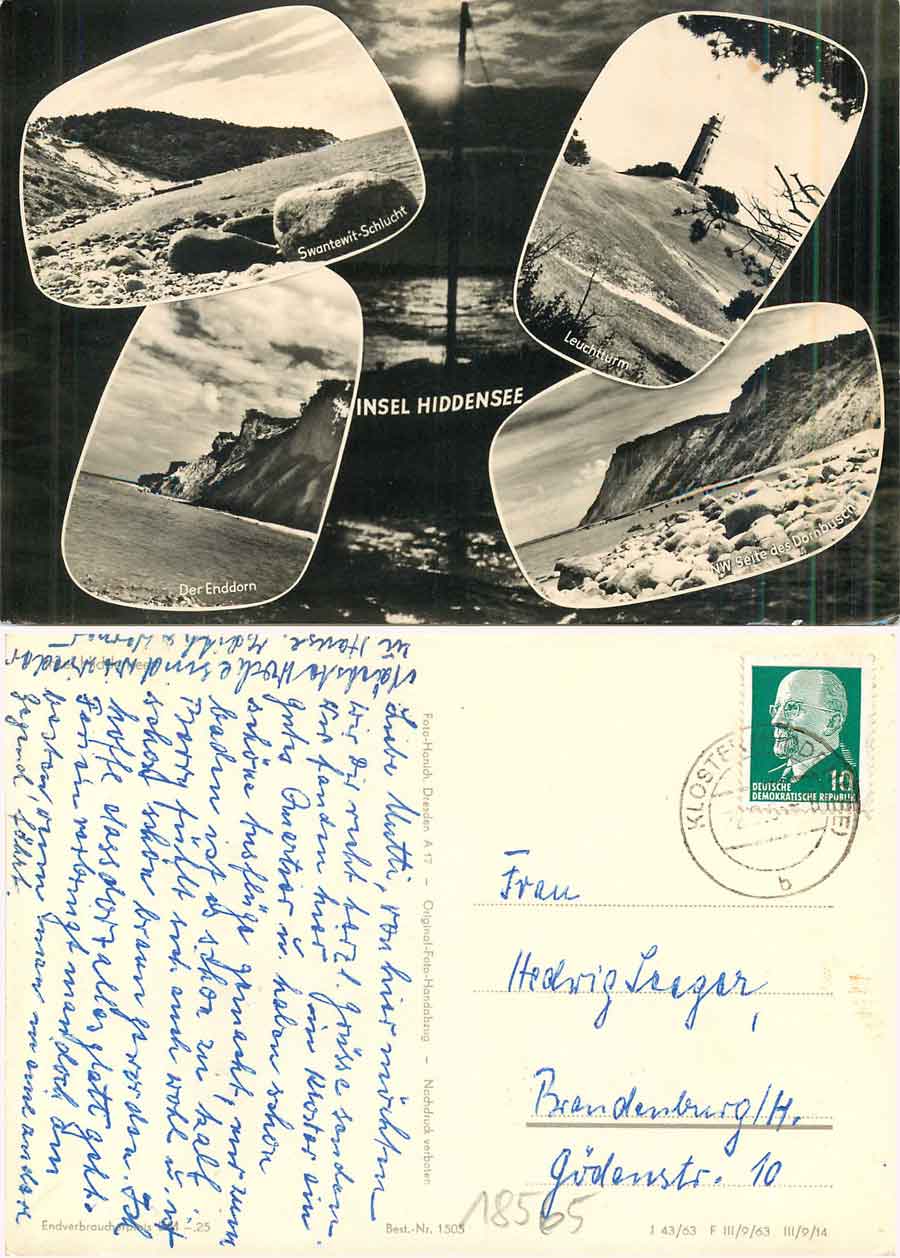 Swantewit-Schlucht
Leuchtturm
INSEL HIDDENSEE
Der Enddorn
NW Seite des Dornbusch
Liebe Mutti, von hier möchten
wir Dir recht herzl. Grüsse senden.
Wir fanden hier in Kloster ein
gutes Quartier u. haben schon
schöne Ausflüge gemacht, nur zum
baden ist es schon zu kalt.
fühlt sich auch wohl u. ist
schon braun geworden. Ich
hoffe, dass alles glatt geht.
Ferien verbringt man doch am
besten, wenn man in eine andere
Gegend fährt.
Nächste Woche sind wir wieder
zu Hause.
Foto-Hanich, Dresden A 17 — Original-Foto-Handabzug — Nachdruck verboten
DEUTSCHE
DEMOKRATISCHE REPUBLIK
10
KLOSTER
b
Frau
Hedwig Seeger,
Brandenburg/H.
Gödenstr. 10
18565
Endverbraucherpreis DM -.25
Best.-Nr. 1505
J 43/63 F III/9/63 III/9/14